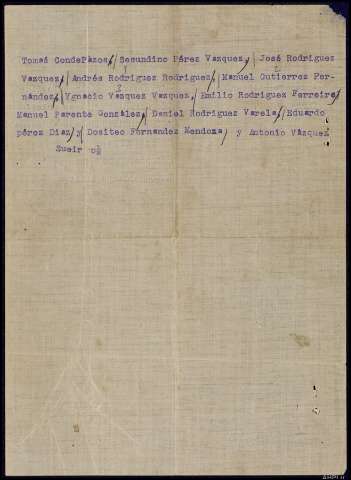 Tomás CondePazos,/ Secundino Pérez Vazquez,/ José Rodriguez
Vazquez,/ Andrés Rodriguez Rodriguez,/ Manuel Gutierrez Fer-
nández,/ Ygnacio Vázquez Vazquez,/ Emilio Rodriguez Ferreiro,/
Manuel Parente González,/ Daniel Rodriguez Varela,/ Eduardo
pérez Diaz/ y/ Dositeo Fernandez Mendoza,/ y Antonio Vázquez
Sueir